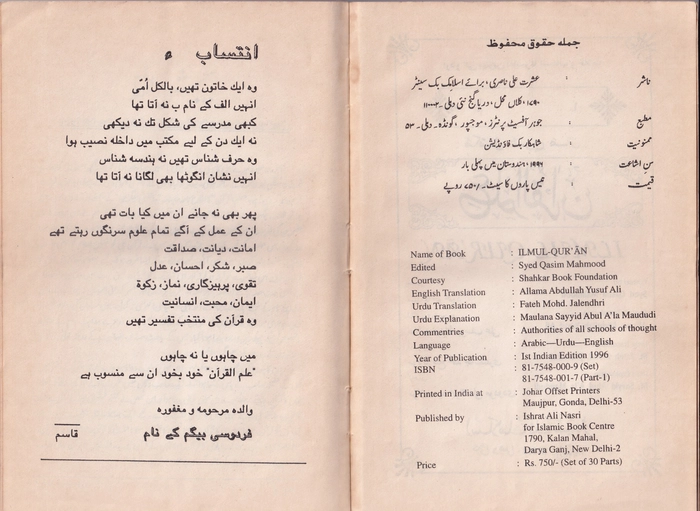 جملہ حقوق محفوظ
ناشر : عشرت علی ناصری، برائے اسلامک بک سینٹر
۱۷۹۰، کلاں محل، دریا گنج نئی دہلی۔ ۱۱۰۰۰۲
مطبع : جوہر آفسیٹ پرنٹرز، موجپور، گونڈہ۔ دہلی۔ ۵۳
ممنونیت : شاہکار بک فاؤنڈیشن
سن اشاعت : ۱۹۹۶ء ہندوستان میں پہلی بار
قیمت : تیس پاروں کا سیٹ۔ /۷۵۰ روپے
Name of Book : ILMUL-QUR'ĀN
Edited : Syed Qasim Mahmood
Courtesy : Shahkar Book Foundation
English Translation : Allama Abdullah Yusuf Ali
Urdu Translation : Fateh Mohd. Jalendhri
Urdu Explanation : Maulana Sayyid Abul A'la Maududi
Commentries : Authorities of all schools of thought
Language : Arabic—Urdu—English
Year of Publication : Ist Indian Edition 1996
ISBN : 81-7548-000-9 (Set)
81-7548-001-7 (Part-1)
Printed in India at : Johar Offset Printers
Maujpur, Gonda, Delhi-53
Published by : Ishrat Ali Nasri
for Islamic Book Centre
1790, Kalan Mahal,
Darya Ganj, New Delhi-2
Price : Rs. 750/- (Set of 30 Parts)
انتساب
وہ ایک خاتون تھیں، بالکل اُمّی
انہیں الف کے نام ب نہ آتا تھا
کبھی مدرسے کی شکل تک نہ دیکھی
نہ ایک دن کے لیے مکتب میں داخلہ نصیب ہوا
وہ حرف شناس تھیں نہ ہندسہ شناس
انہیں نشان انگوٹھا بھی لگانا نہ آتا تھا
پھر بھی نہ جانے ان میں کیا بات تھی
ان کے عمل کے آگے تمام علوم سرنگوں رہتے تھے
امانت، دیانت، صداقت
صبر، شکر، احسان، عدل
تقوی، پرہیزگاری، نماز، زکوة
ایمان، محبت، انسانیت
وہ قرآن کی منتخب تفسیر تھیں
میں چاہوں یا نہ چاہوں
"علم القرآن" خود بخود ان سے منسوب ہے
والدہ مرحومہ و مغفورہ
فردوسی بیگم کے نام
قاسم